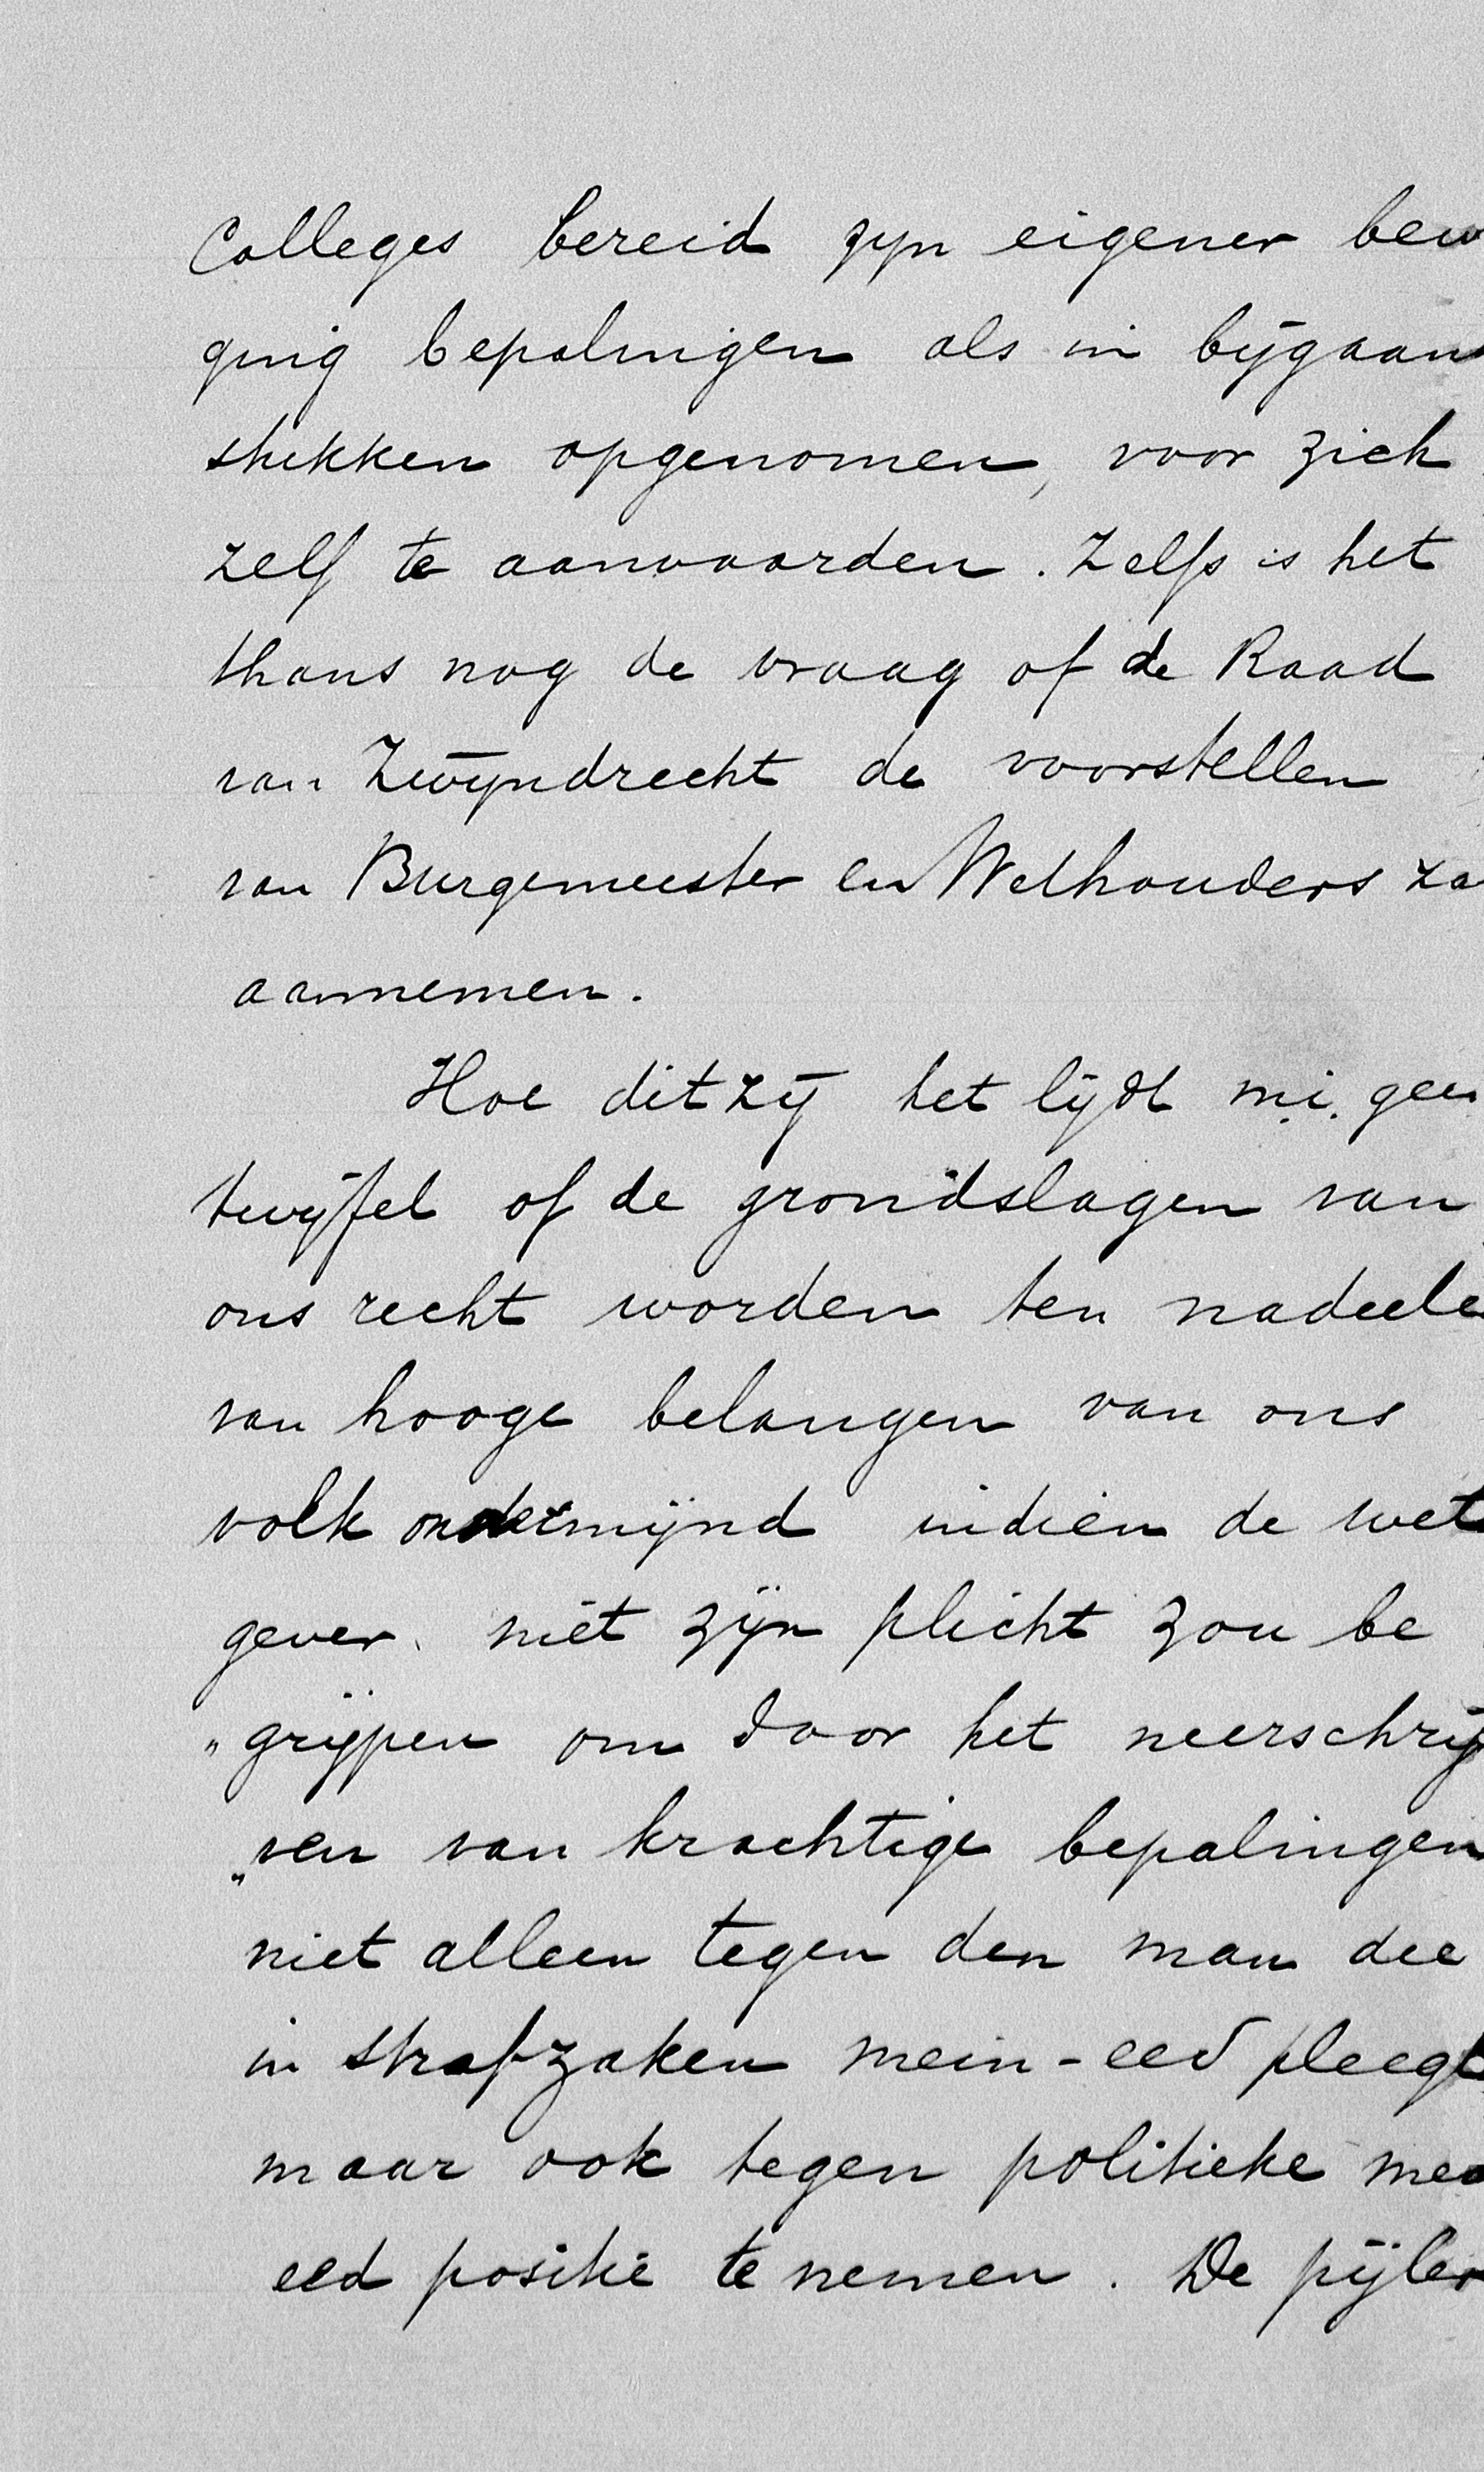 Colleges bereid zijn eigener bew
ging bepalingen als in bijgaan
stukken opgenomen, voor zich
zelf te aanvaarden. Zelfs is het
thans nog de vraag of de Raad
van Zwijndrecht de voorstellen
van Burgemeester en Wethouders za
aannemen.
Hoe dit zij het lijdt m.i. geen
twijfel of de grondslagen van
ons recht worden ten nadeele
van hooge belangen van ons
volk ondermijnd indien de wet
gever niet zijn plicht zou be
"grijpen om door het neerschrij
"ven van krachtige bepalingen
niet alleen tegen den man die
in strafzaken mein-eed pleegt
maar ook tegen politieke mee
eed positie te nemen. De pijler